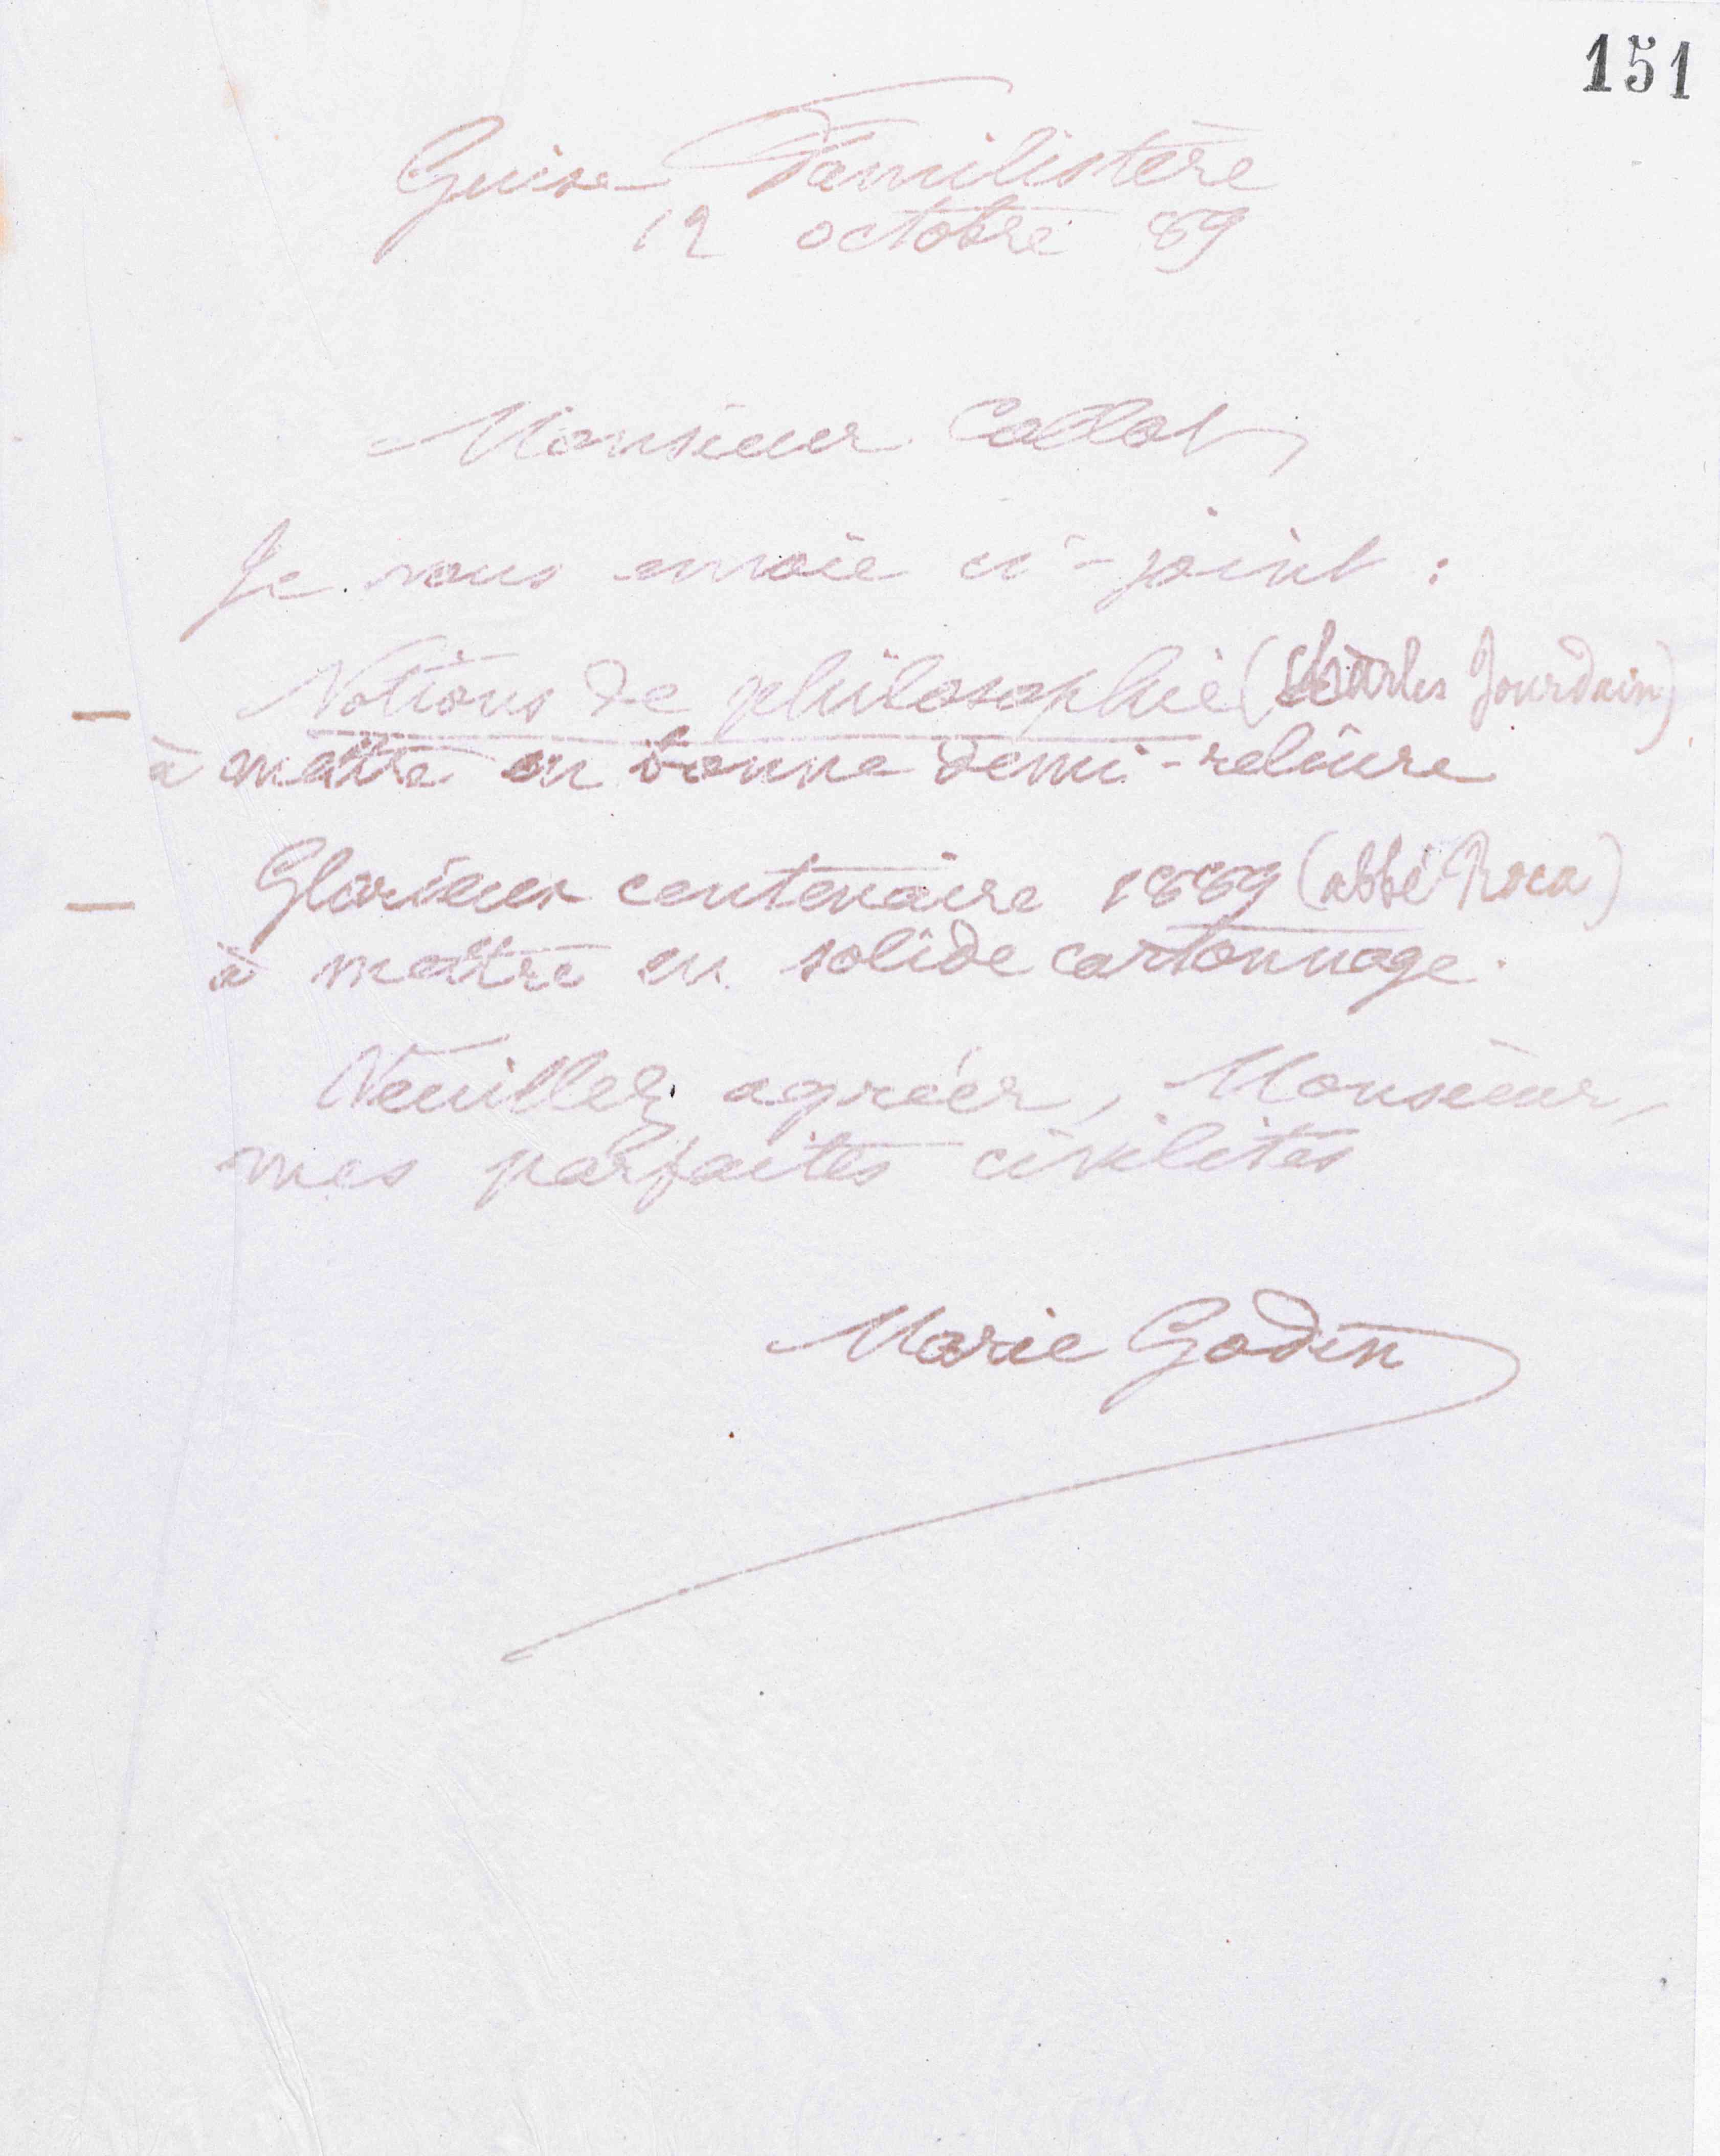 151
Guise Familistère
12 octobre 89
Monsieur Collot,
Je vous envoie ci-joint :
— Notions de philosophie (Charles Jourdain)
à mettre en bonne demi-reliure
— Glorieux centenaire 1889 (abbé Roca)
à mettre en solide cartonnage.
Veuillez agréer, Monsieur,
mes parfaites civilités
Marie Godin